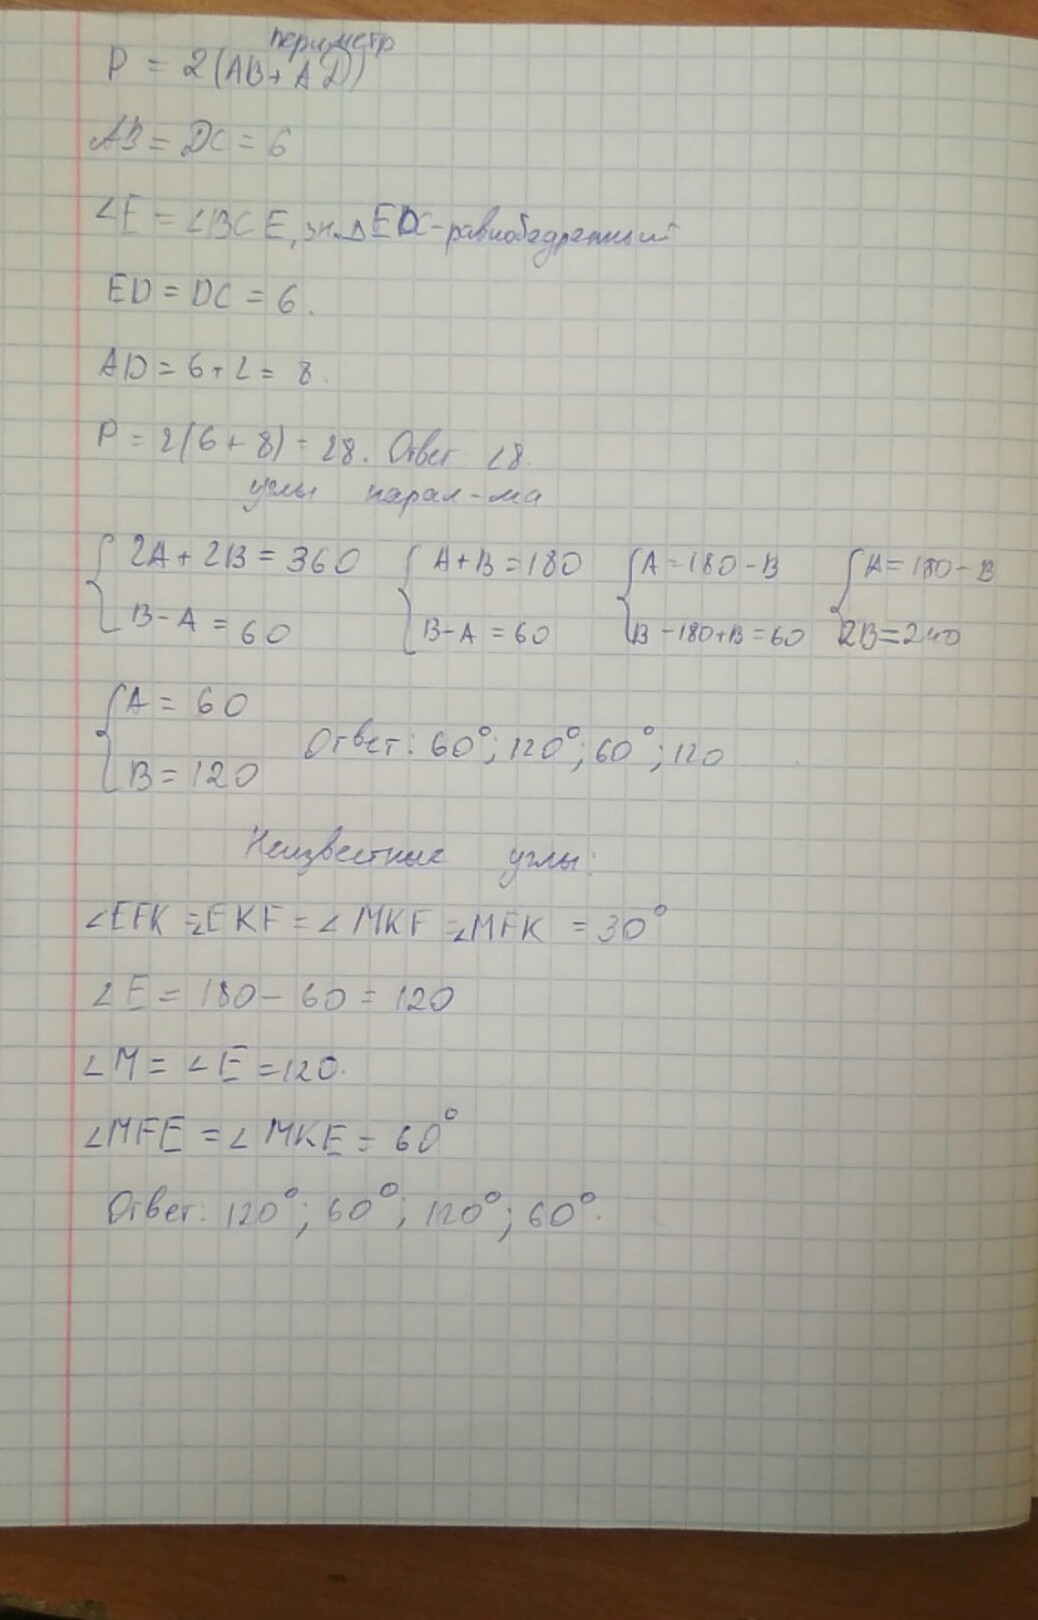 периметр
P = 2(AB + AD)
AB = DC = 6
∠E = ∠BCE, зн. Δ EDC - равнобедренный
ED = DC = 6.
AD = 6 + 2 = 8.
P = 2(6 + 8) = 28. Ответ 28
углы парал-ма
{ 2A + 2B = 360 { A + B = 180 { A = 180 - B { A = 180 - B
B - A = 60 B - A = 60 B - 180 + B = 60 2B = 240
{ A = 60
B = 120 Ответ: 60°; 120°; 60°; 120
Неизвестные углы:
∠EFK = ∠EKF = ∠MKF = ∠MFK = 30°
∠E = 180 - 60 = 120
∠M = ∠E = 120.
∠MFE = ∠MKE = 60°
Ответ. 120°; 60°; 120°; 60°.